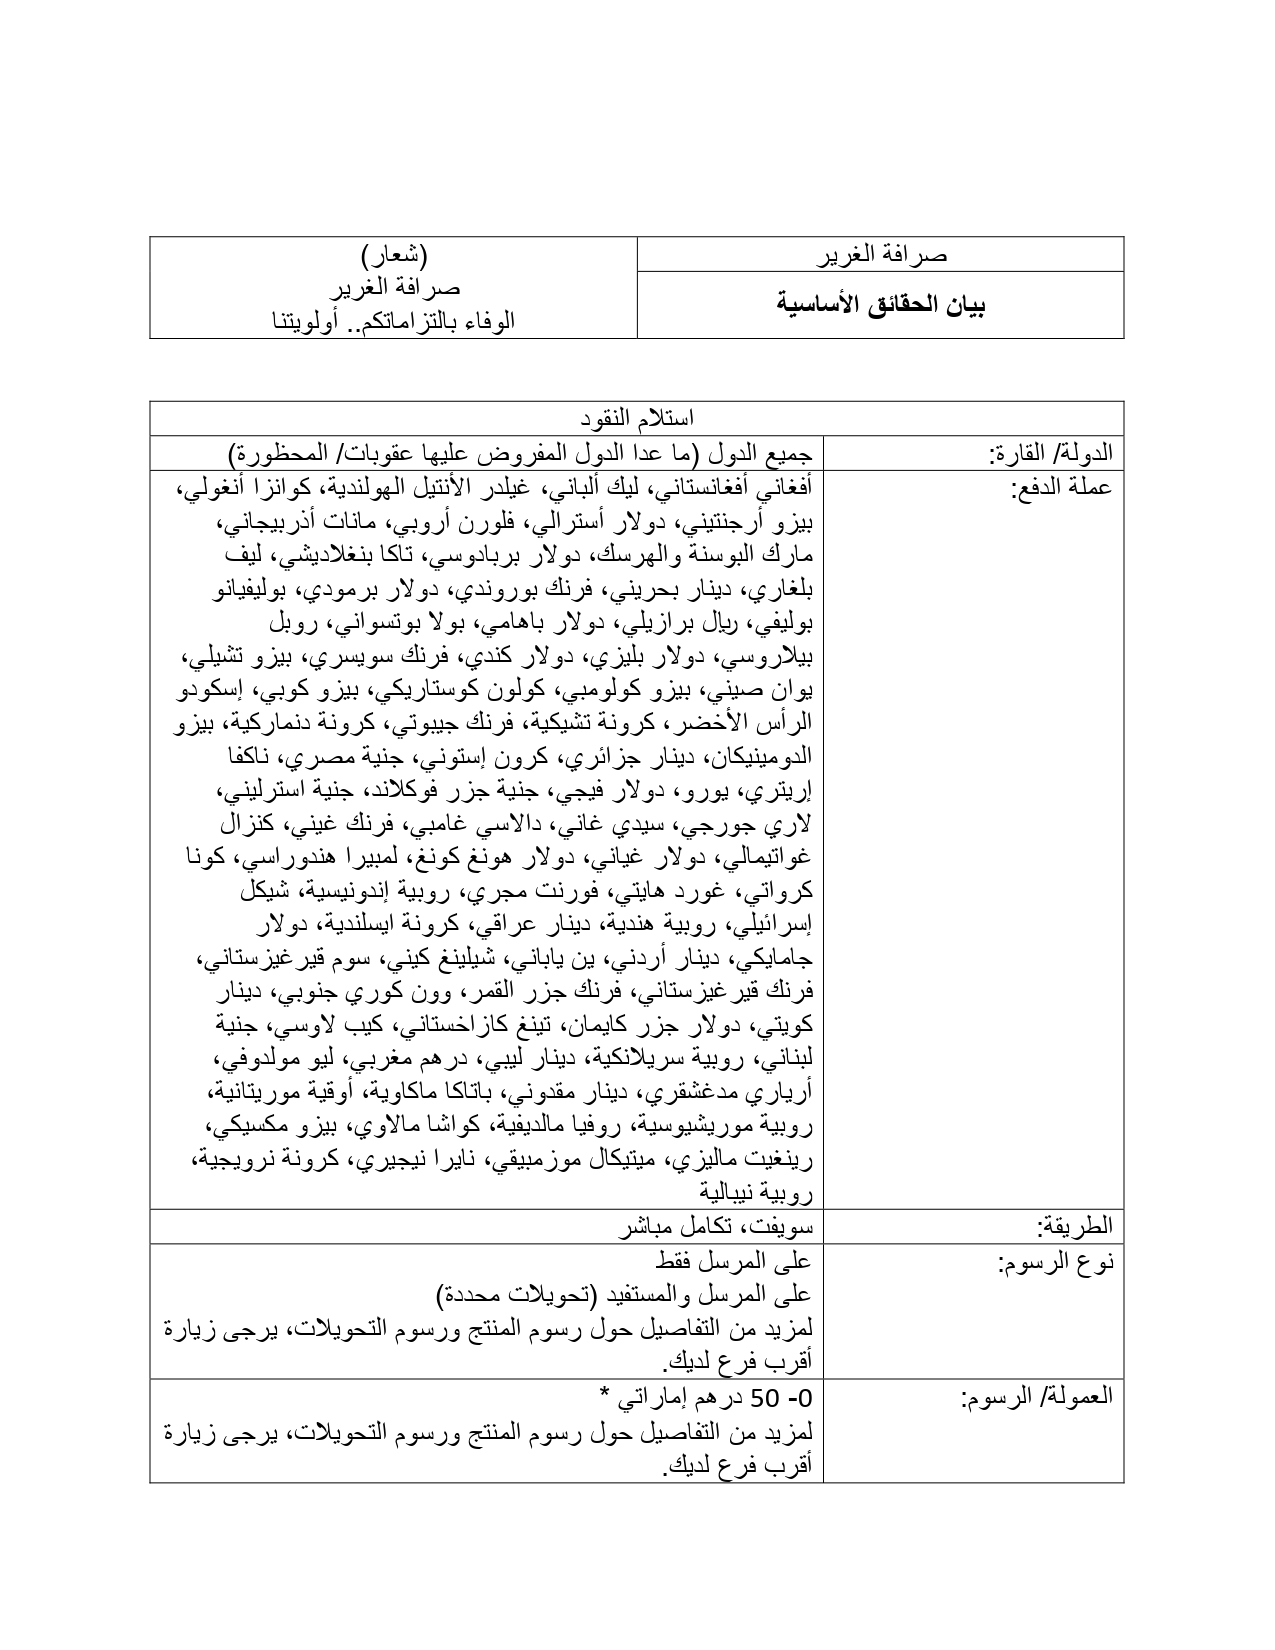 صرافة الغرير
بيان الحقائق الأساسية
(شعار)
صرافة الغرير
الوفاء بالتزاماتكم.. أولويتنا
استلام النقود
الدولة/ القارة:
جميع الدول (ما عدا الدول المفروض عليها عقوبات/ المحظورة)
عملة الدفع:
أفغاني أفغانستاني، ليك ألباني، غيلدر الأنتيل الهولندية، كوانزا أنغولي،
بيزو أرجنتيني، دولار أسترالي، فلورن أروبي، مانات أذربيجاني،
مارك البوسنة والهرسك، دولار بربادوسي، تاكا بنغلاديشي، ليف
بلغاري، دينار بحريني، فرنك بوروندي، دولار برمودي، بوليفيانو
بوليفي، ريال برازيلي، دولار باهامي، بولا بوتسواني، روبل
بيلاروسي، دولار بليزي، دولار كندي، فرنك سويسري، بيزو تشيلي،
يوان صيني، بيزو كولومبي، كولون كوستاريكي، بيزو كوبي، إسكودو
الرأس الأخضر، كرونة تشيكية، فرنك جيبوتي، كرونة دنماركية، بيزو
الدومينيكان، دينار جزائري، كرون إستوني، جنية مصري، ناكفا
إريتري، يورو، دولار فيجي، جنية جزر فوكلاند، جنية استرليني،
لاري جورجي، سيدي غاني، دالاسي غامبي، فرنك غيني، كنزال
غواتيمالي، دولار غياني، دولار هونغ كونغ، لمبيرا هندوراسي، كونا
كرواتي، غورد هايتي، فورنت مجري، روبية إندونيسية، شيكل
إسرائيلي، روبية هندية، دينار عراقي، كرونة ايسلندية، دولار
جامايكي، دينار أردني، ين ياباني، شيلينغ كيني، سوم قيرغيزستاني،
فرنك قيرغيزستاني، فرنك جزر القمر، وون كوري جنوبي، دينار
كويتي، دولار جزر كايمان، تينغ كازاخستاني، كيب لاوسي، جنية
لبناني، روبية سريلانكية، دينار ليبي، درهم مغربي، ليو مولدوفي،
أرياري مدغشقري، دينار مقدوني، باتاكا ماكاوية، أوقية موريتانية،
روبية موريشيوسية، روفيا مالديفية، كواشا مالاوي، بيزو مكسيكي،
رينغيت ماليزي، ميتيكال موزمبيقي، نايرا نيجيري، كرونة نرويجية،
روبية نيبالية
الطريقة:
سويفت، تكامل مباشر
نوع الرسوم:
على المرسل فقط
على المرسل والمستفيد (تحويلات محددة)
لمزيد من التفاصيل حول رسوم المنتج ورسوم التحويلات، يرجى زيارة
أقرب فرع لديك.
العمولة/ الرسوم:
0- 50 درهم إماراتي *
لمزيد من التفاصيل حول رسوم المنتج ورسوم التحويلات، يرجى زيارة
أقرب فرع لديك.